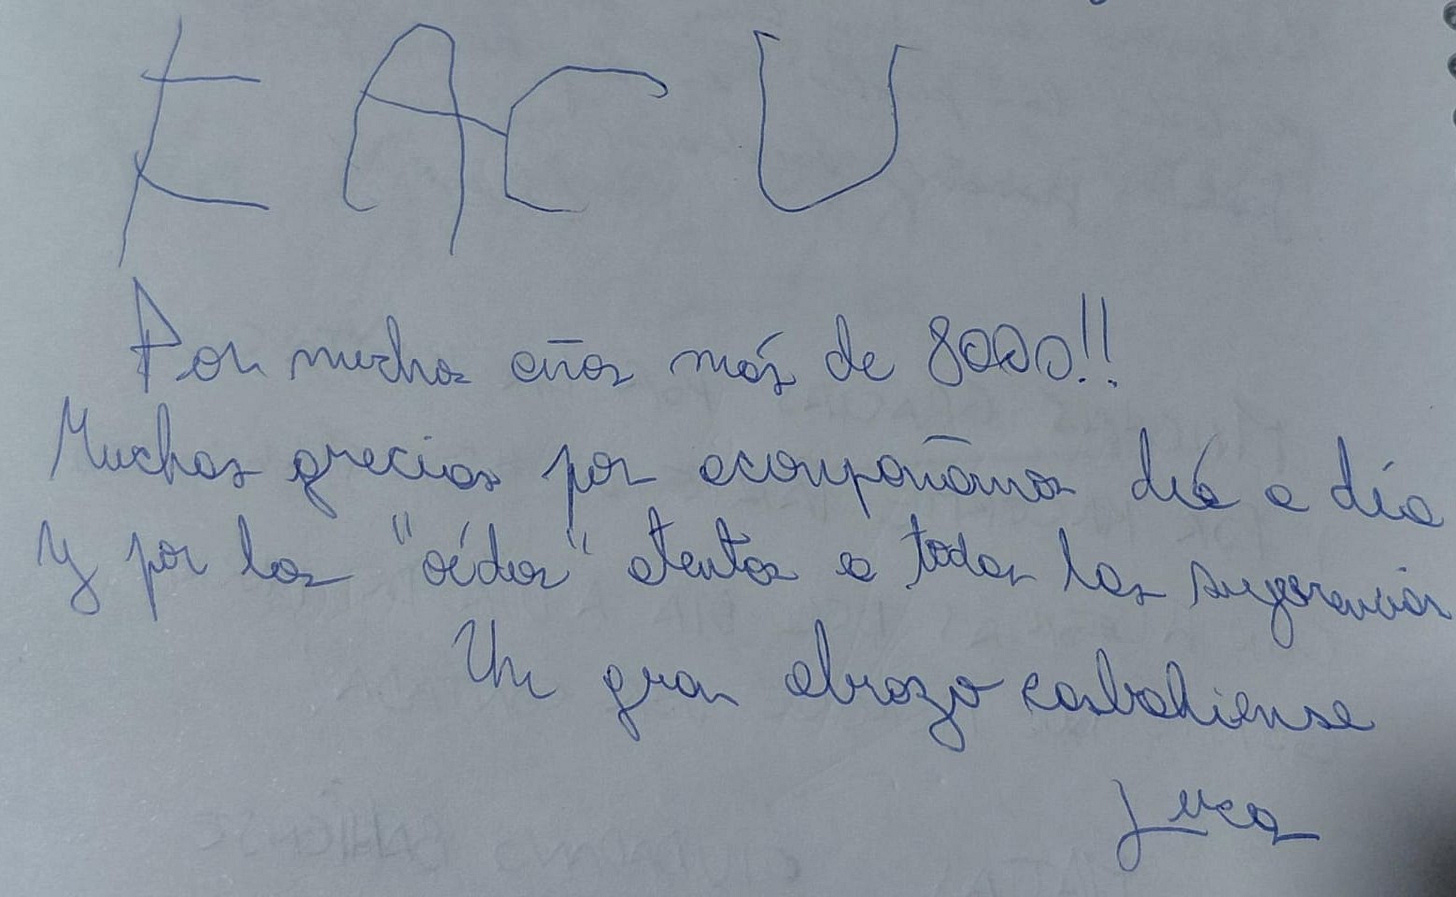 FACU
Por muchos años más de 8000!!
Muchas gracias por acompañarnos día a día
y por los "oídos" atentos a todas las sugerencias
Un gran abrazo casbahiense
Luca